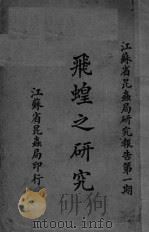 江蘇省昆蟲局研究報告第一期
飛蝗之研究
江蘇省昆蟲局印行
mtoou.info